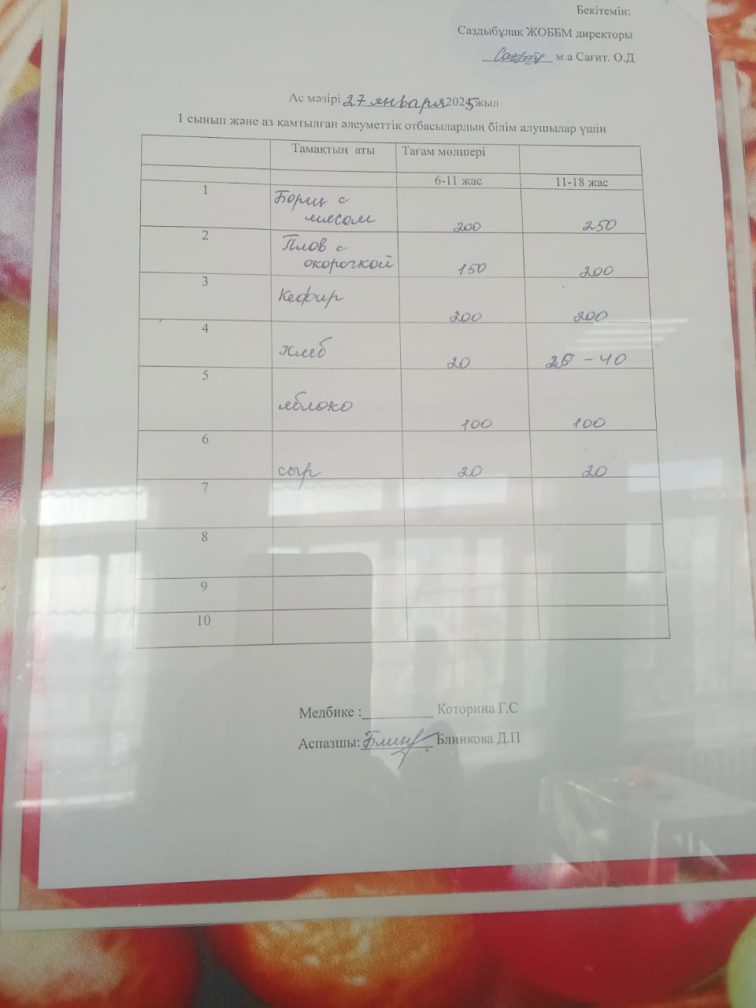 Бекітемін:
Саздыбұлақ ЖОББМ директоры
м.а Сағит. О.Д
Ас мәзірі 27 января 2025 жыл
1 сынып және аз қамтылған әлеуметтік отбасылардың білім алушылар үшін
Тамақтың аты Тағам мөлшері
6-11 жас 11-18 жас
1 Борщ с
мясом 200 250
2 Плов с
окорочкой 150 200
3 Кефир 200 200
4 хлеб 20 - 40
5 яблоко 100 100
6 сыр 20 20
7
8
9
10
Медбике :__________ Которина Г.С
Аспазшы: Блин Блинкова Д.П